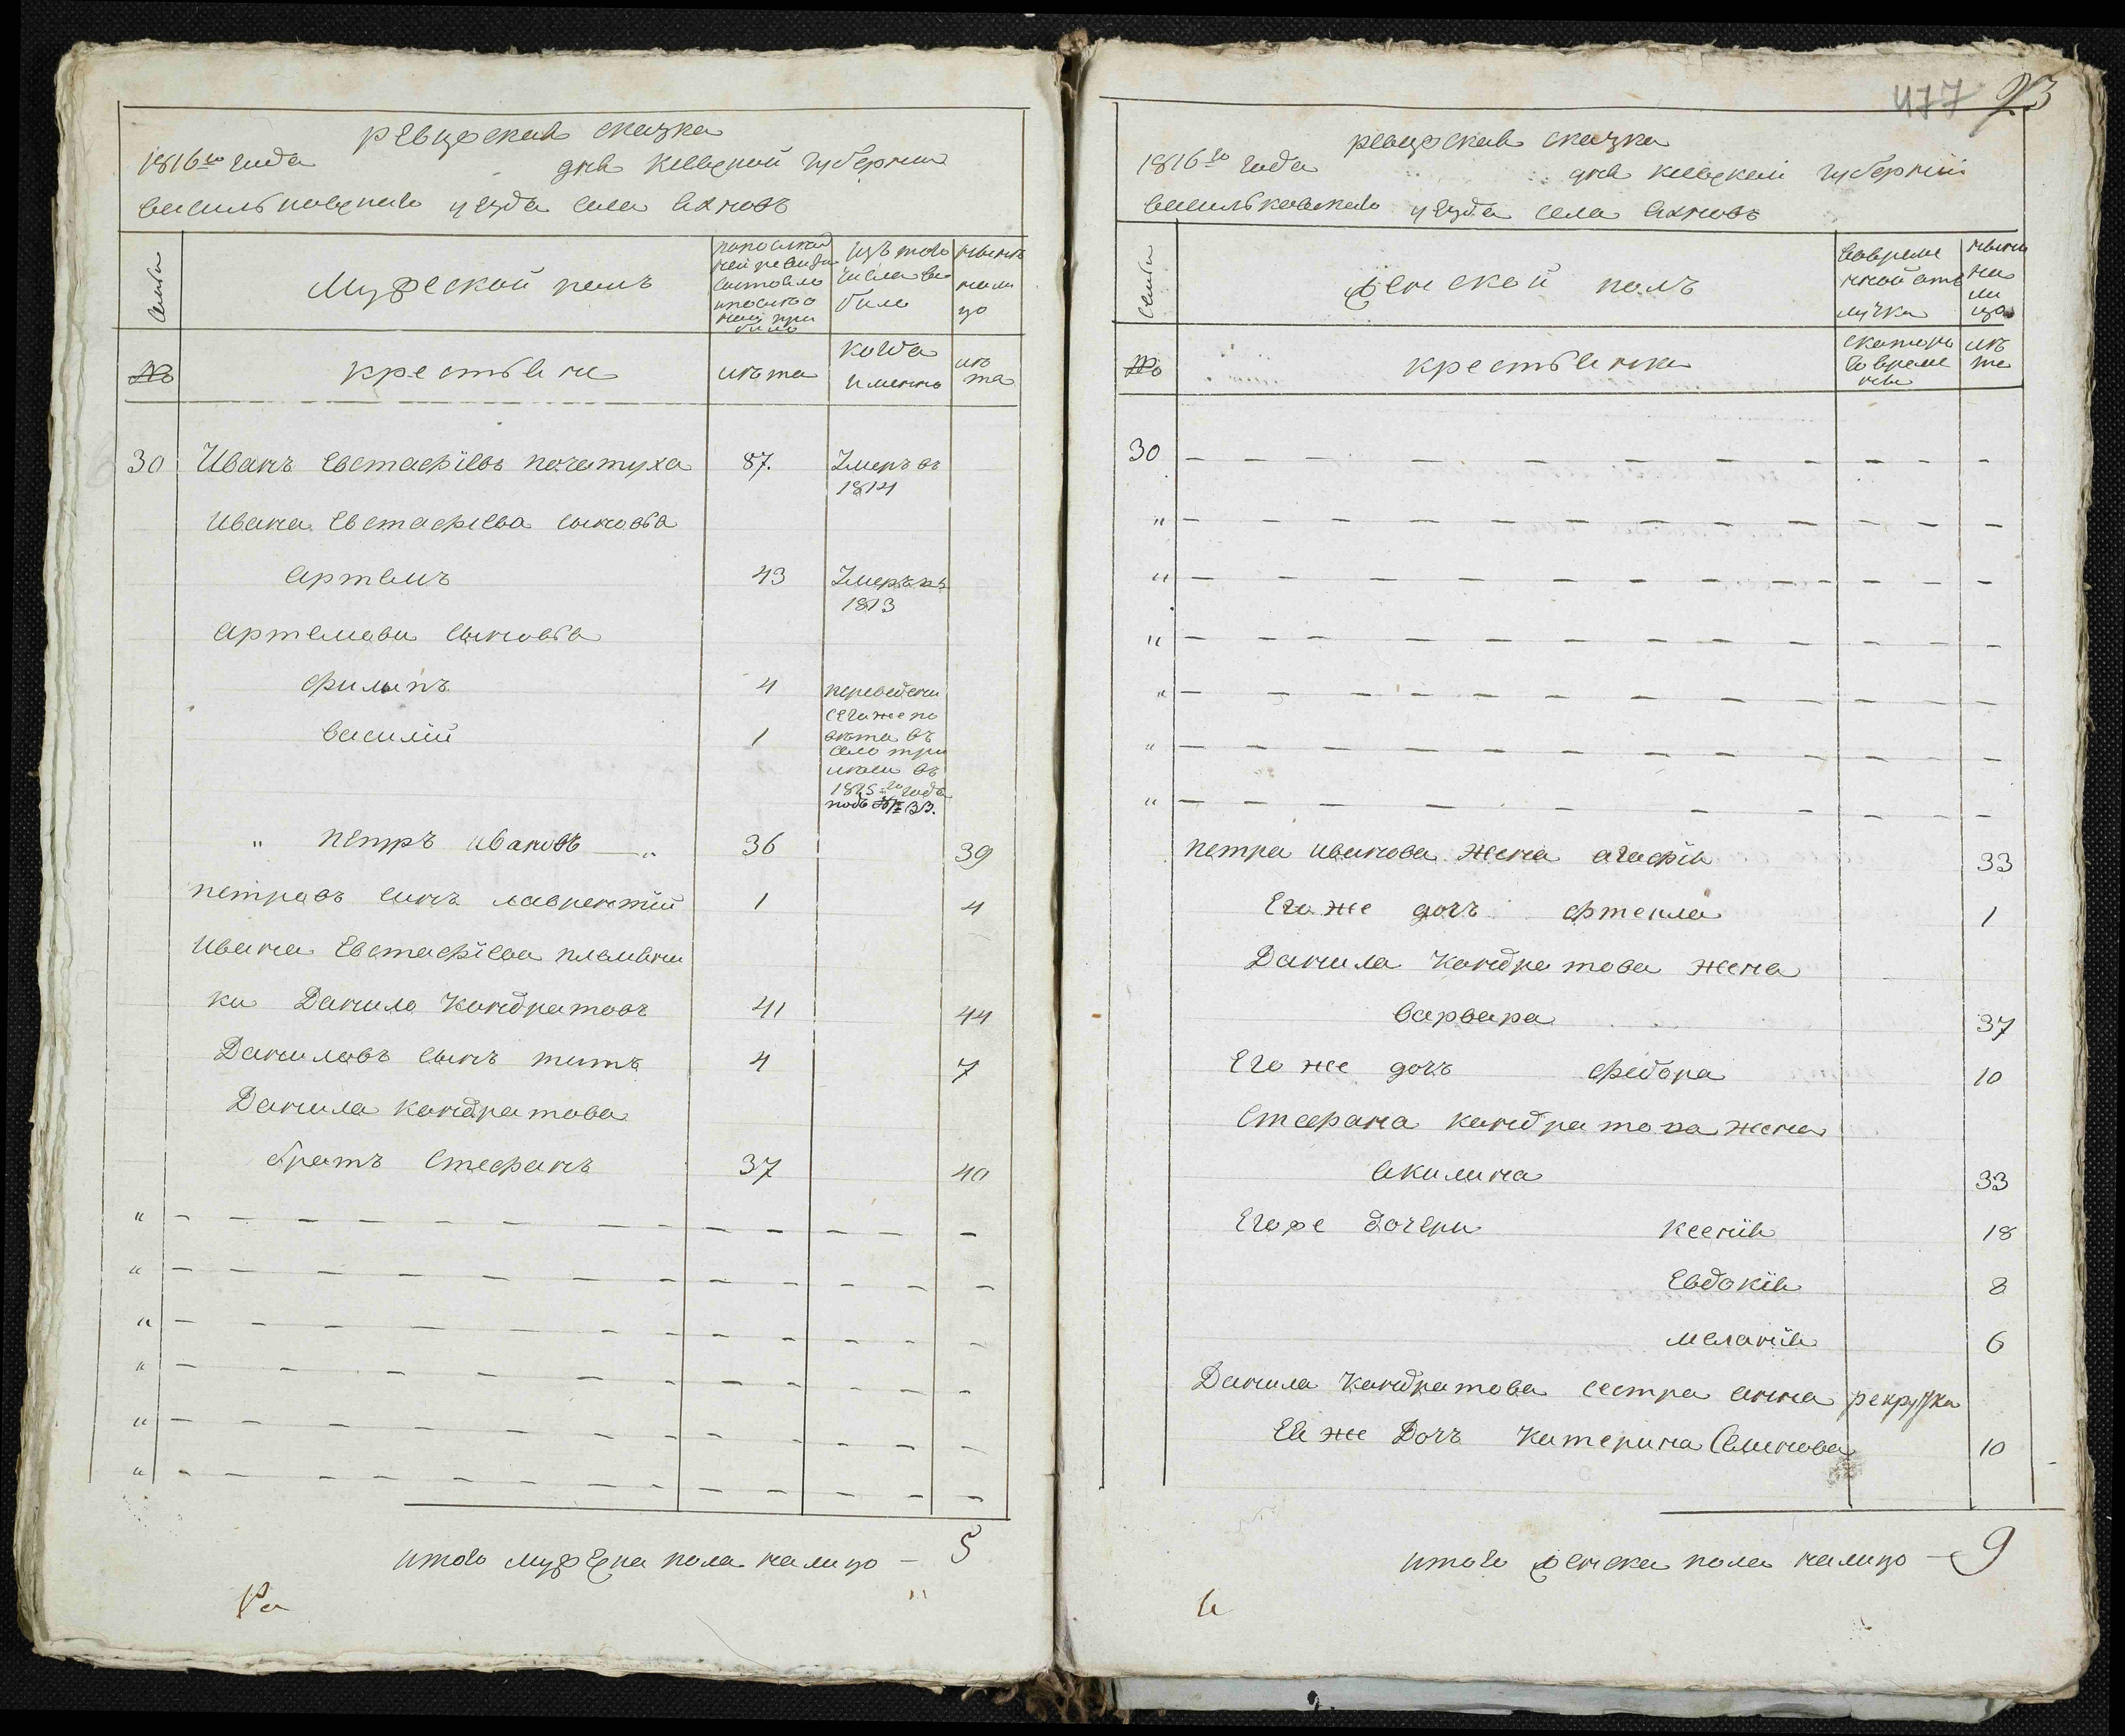 ревизская сказка
1816го года дня Киевской губернии
васильковского уезда села Яхновъ
семьи
Мужеской полъ
по последней ревизии состояло и после оной прибыло
Изъ того числа выбыло
ныне налицо
№
крестьяне
лѣта
когда именно
лѣта
30 Иванъ Евстафіевъ почетуха 87. Умеръ въ
1814
Ивана Евстафіева сыновья
Артемъ 43 Умеръ въ
1813
Артемова сыновья
Филипъ 4 переведены
сего же по
Василій 1 вѣта въ
село три
лѣсы въ
1815го года
подъ № 33.
" Петръ Ивановъ — " 36 39
Петровъ сынъ Лаврентій 1 4
Ивана Евстафіева племянни
ки Данило Кондратовъ 41 44
Даниловъ сынъ Титъ 4 7
Данила Кондратова
братъ Стефанъ 37 40
"
"
"
"
"
"
итого мужеска пола налицо — 5
477 23
ревизская сказка
1816го года дня Киевской губерніи
васильковскаго уезда села Яхновъ
семьи
женской полъ
Во временной отлучке
ныне налицо
№
крестьянки
с которого времени
лѣта
30
"
"
"
"
"
"
Петра Иванова жена Агафія 33
Его же дочь Фтекла 1
Данила Кондратова жена
Варвара 37
Его же дочь Федора 10
Стефана Кондратова жена
Акилина 33
Его же дочери Ксенія 18
Евдокія 8
Меланія 6
Данила Кондратова сестра Анна рекрутка
Ея же Дочь Катерина Семенова 10
итого женска пола налицо — 9